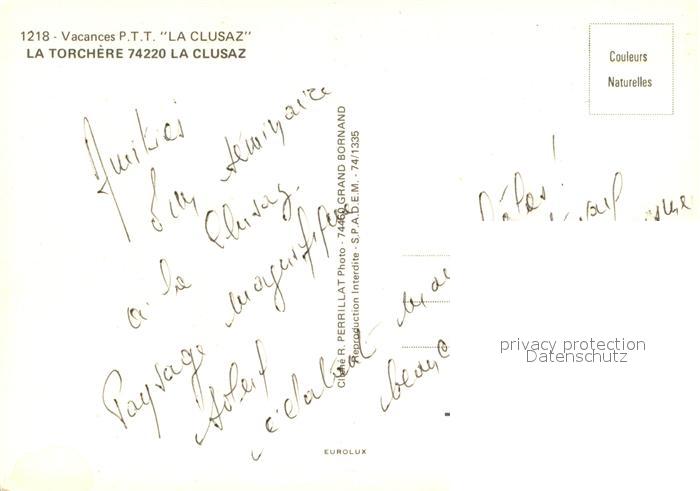 1218 - Vacances P.T.T. "LA CLUSAZ"
LA TORCHÈRE 74220 LA CLUSAZ
Couleurs
Naturelles
Amitiés
d'un séminaire
à la Clusaz.
Paysage magnifique
Soleil
éclatant mais
beauc
Cliché R. PERRILLAT Photo - 74450 GRAND BORNAND
Reproduction Interdite - S.P.A.D.E.M. - 74/1335
privacy protection
Datenschutz
EUROLUX